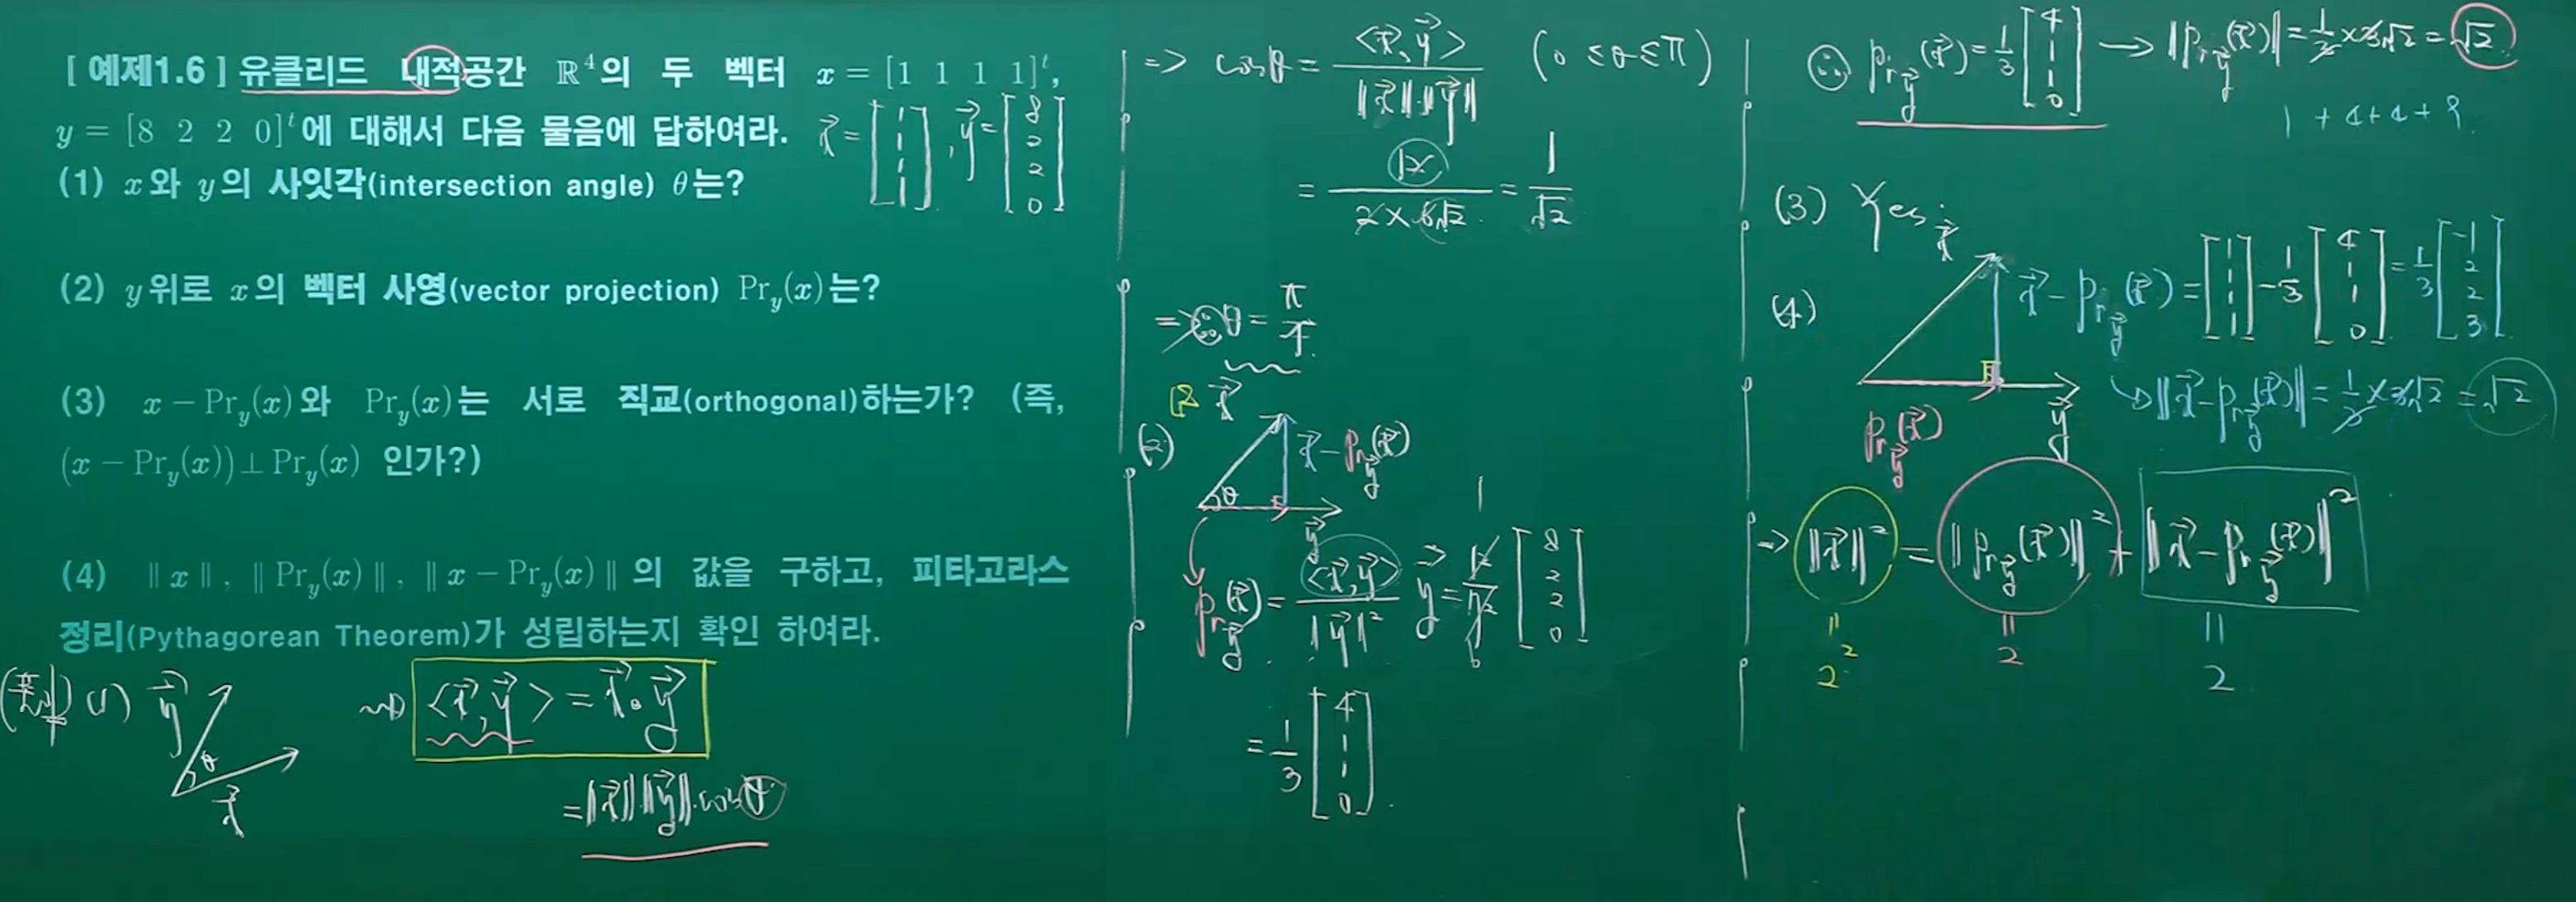 [ 예제1.6 ] 유클리드 내적공간 ℝ⁴의 두 벡터 x = [1 1 1 1]ᵗ,
y = [8 2 2 0]ᵗ에 대해서 다음 물음에 답하여라.
x⃗ = [1 1 1 1], y⃗ = [8 2 2 0]
(1) x와 y의 사잇각(intersection angle) θ는?
(2) y위로 x의 벡터 사영(vector projection) Pr_y(x)는?
(3) x − Pr_y(x)와 Pr_y(x)는 서로 직교(orthogonal)하는가? (즉,
(x − Pr_y(x)) ⊥ Pr_y(x) 인가?)
(4) ‖x‖, ‖Pr_y(x)‖, ‖x − Pr_y(x)‖의 값을 구하고, 피타고라스
정리(Pythagorean Theorem)가 성립하는지 확인 하여라.
(풀이) (1) y⃗ θ x⃗
⟨x⃗, y⃗⟩ = x⃗ · y⃗
= ‖x⃗‖ ‖y⃗‖ · cosθ
⇒ cosθ = ⟨x⃗, y⃗⟩ / ‖x⃗‖ · ‖y⃗‖ (0 ≤ θ ≤ π)
= 12 / 2 × 6√2 = 1/√2
⇒ θ = π/4
(2) x⃗ θ y⃗ x⃗ − Pr_y⃗(x⃗)
Pr_y⃗(x⃗) = ⟨x⃗, y⃗⟩ / ‖y⃗‖² y⃗ = 12/72 [8 2 2 0]
1
6
= 1/3 [4 1 1 0]
Pr_y⃗(x⃗) = 1/3 [4 1 1 0] → ‖Pr_y⃗(x⃗)‖ = 1/3 × 3√2 = √2
1 + 4 + 4 + 9
(3) Yes.
(4) x⃗ y⃗ Pr_y⃗(x⃗)
x⃗ − Pr_y⃗(x⃗) = [1 1 1 1] − 1/3 [4 1 1 0] = 1/3 [-1 2 2 3]
‖x⃗ − Pr_y⃗(x⃗)‖ = 1/3 × 3√2 = √2
⇒ ‖x⃗‖² = ‖Pr_y⃗(x⃗)‖² + ‖x⃗ − Pr_y⃗(x⃗)‖²
= 2² = 2 = 2